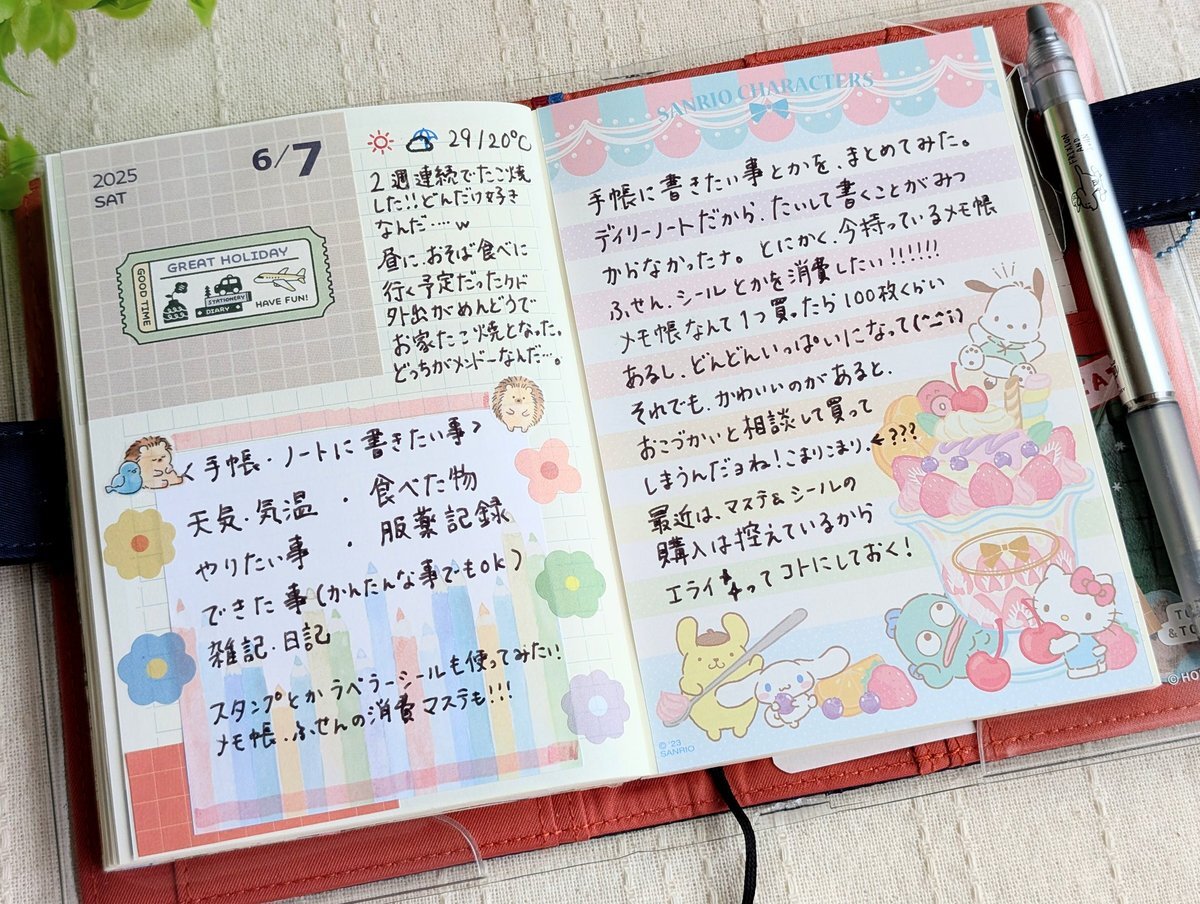 2025
SAT
6/7
29/20℃
GREAT HOLIDAY
GOOD TIME
STATIONERY
DIARY
HAVE FUN!
2週連続でたこ焼
した!!どんだけ好き
なんだ……w
昼に、おそば食べに
行く予定だったケド
外出がめんどうで
お家たこ焼となった。
どっちがメンドーなんだ…。
<手帳・ノートに書きたい事>
天気・気温 ・食べた物
やりたい事 ・服薬記録
できた事(かんたんな事でもok)
雑記・日記
スタンプとかラベラーシールも使ってみたい!
メモ帳、ふせんの消費 マステも!!!
SANRIO CHARACTERS
手帳に書きたい事とかを、まとめてみた。
デイリーノートだから、たいして書くことがみつ
からなかったナ。とにかく、今持っているメモ帳
ふせん、シールとかを消費したい!!!!!!
メモ帳なんて1つ買ったら100枚くらい
あるし、どんどんいっぱいになって(^^;)
それでも、かわいいのがあると、
おこづかいと相談して買って
しまうんだヨね!こまりこまり。←???
最近は、マステ&シールの
購入は控えているから
エライってコトにしておく!
© '23
SANRIO